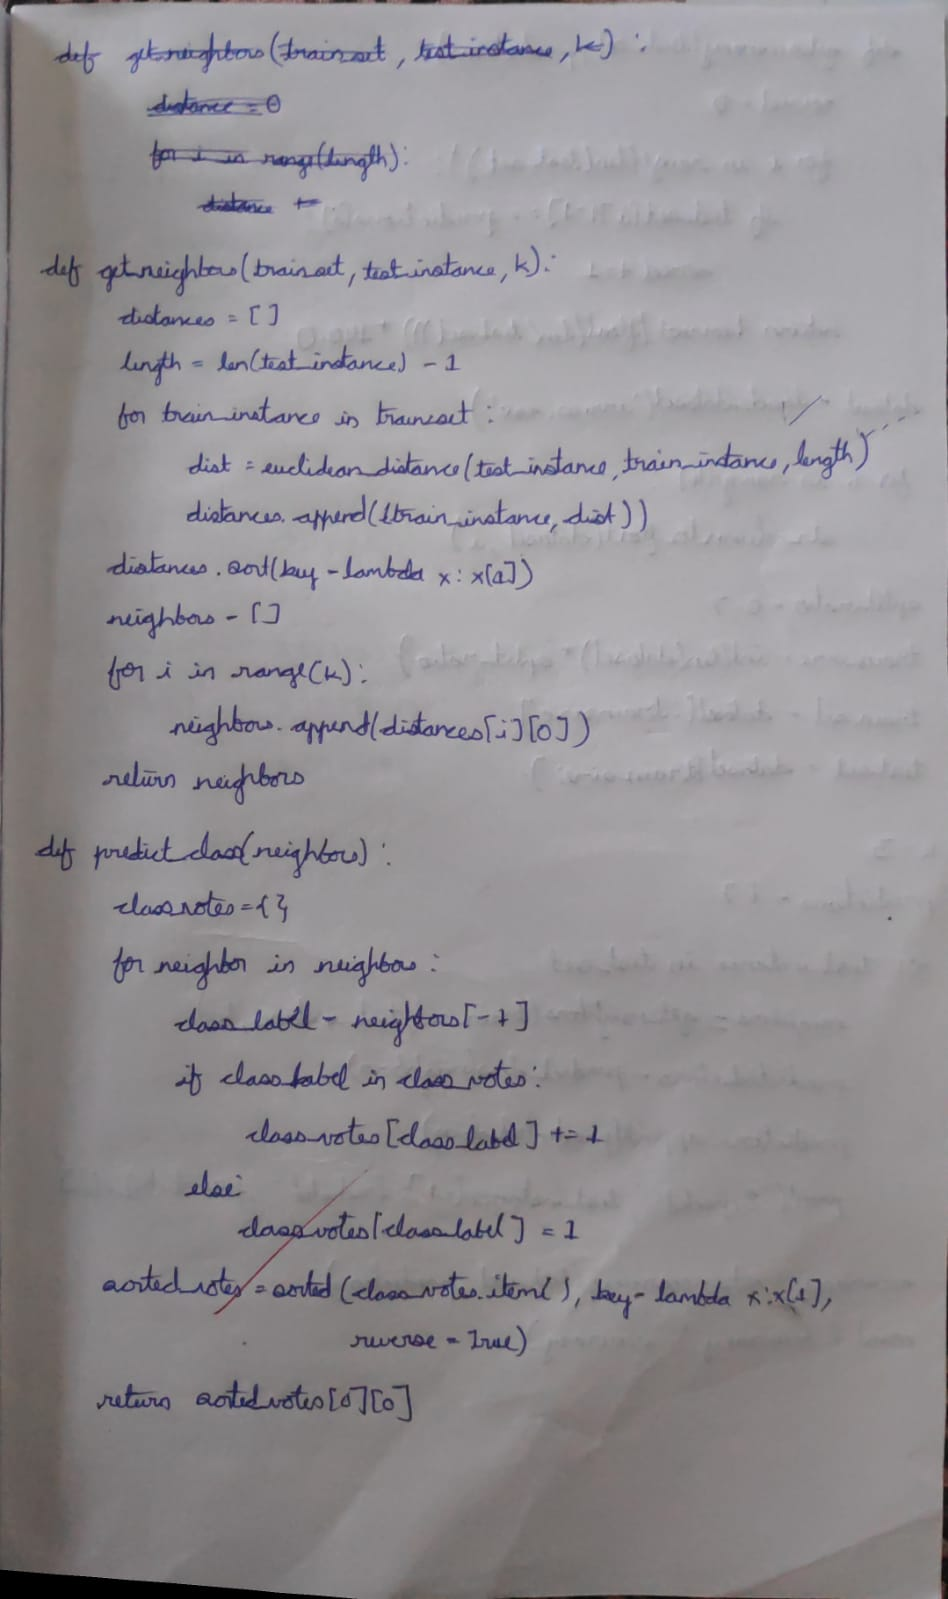 def get_neighbors(train_set, test_instance, k):
distance = 0
for i in range(length):
distance +=
def get_neighbors(train_set, test_instance, k):
distances = []
length = len(test_instance) - 1
for train_instance in train_set:
dist = euclidean_distance(test_instance, train_instance, length)
distances.append((train_instance, dist))
distances.sort(key = lambda x: x[1])
neighbors = []
for i in range(k):
neighbors.append(distances[i][0])
return neighbors
def predict_class(neighbors):
class_votes = {}
for neighbor in neighbors:
class_label = neighbors[-1]
if class_label in class_votes:
class_votes[class_label] += 1
else:
class_votes[class_label] = 1
sorted_votes = sorted(class_votes.item(), key = lambda x:x[1],
reverse = True)
return sorted_votes[0][0]